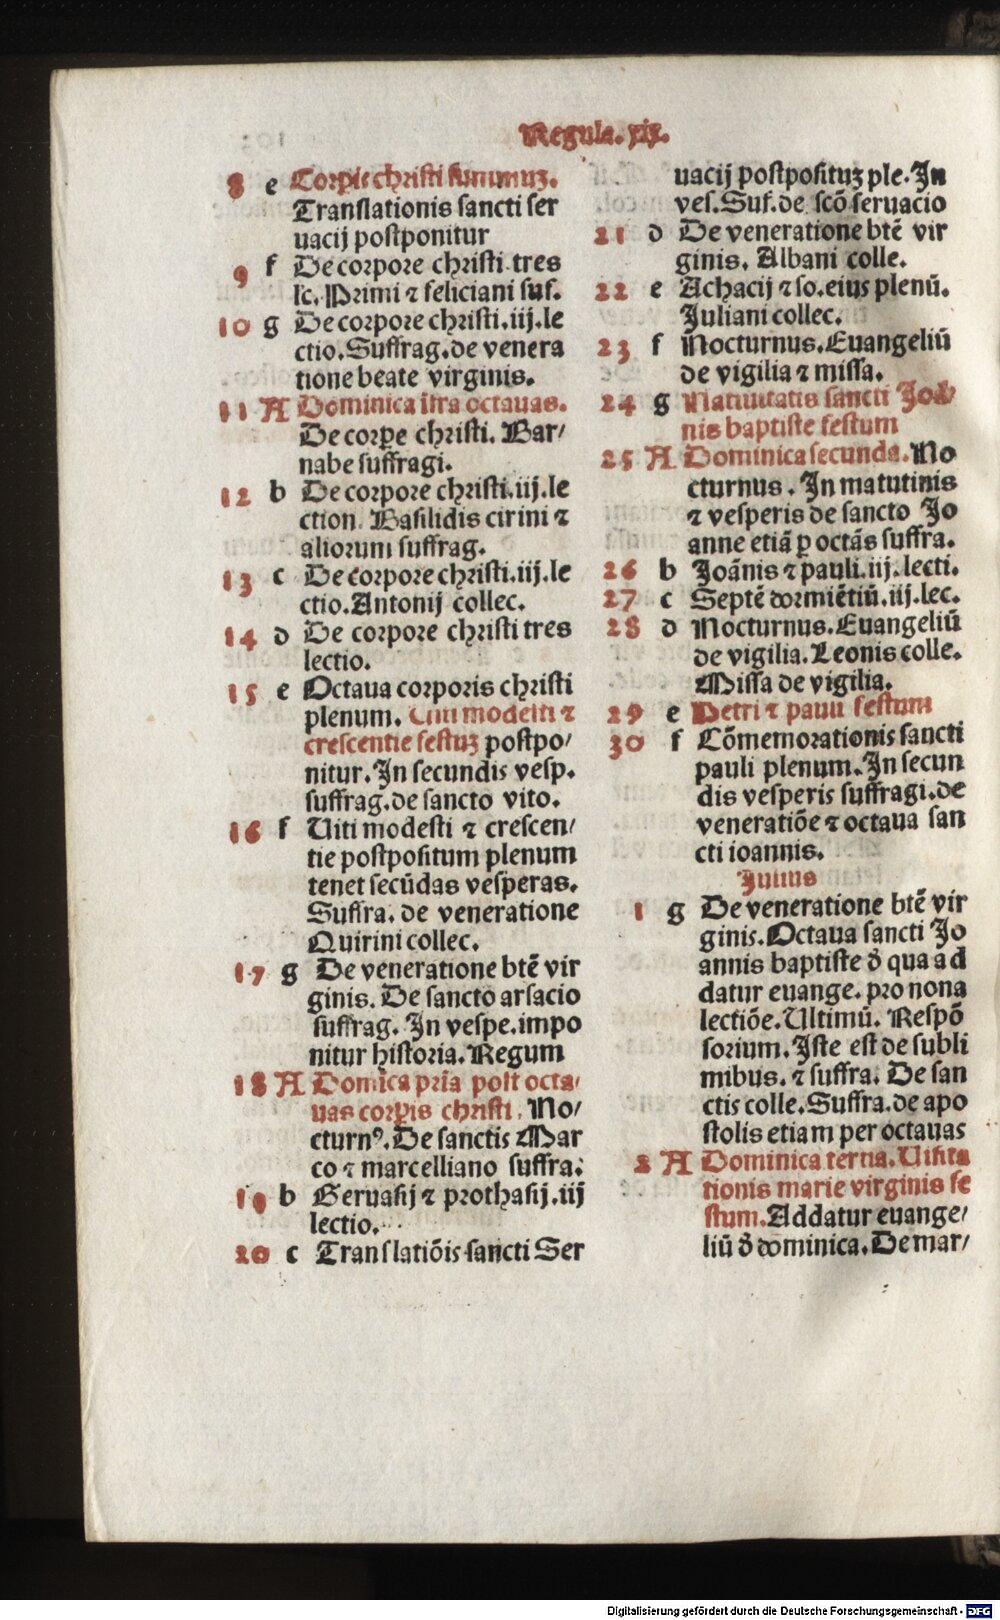 Regula. xix.
8 e Corpis christi summuʒ.
Translationis sancti ser
uacij postponitur
9 f De corpore christi tres
lc. Primi ⁊ feliciani suf.
10 g De corpore christi.iij.le
ctio.Suffrag.de venera
tione beate virginis.
11 A Dominica ifra octauas.
De corpe christi. Bar/
nabe suffragi.
12 b De corpore christi.iij.le
ction. Basilidis cirini ⁊
aliorum suffrag.
13 c De corpore christi.iij.le
ctio.Antonij collec.
14 d De corpore christi tres
lectio.
15 e Octaua corporis christi
plenum. Uiti modesti ⁊
crescentie festuʒ postpo/
nitur.In secundis vesp.
suffrag.de sancto vito.
16 f Uiti modesti ⁊ crescen/
tie postpositum plenum
tenet secūdas vesperas.
Suffra. de veneratione
Quirini collec.
17 g De veneratione btē vir
ginis. De sancto arsacio
suffrag. In vespe.impo
nitur historia.Regum
18 A Domīca pria post octa/
uas corpis christi. No/
cturnꝰ.De sanctis Mar
co ⁊ marcelliano suffra.
19 b Geruasij ⁊ prothasij.iij
lectio.
20 c Translatiōis sancti Ser
uacij postposituʒ ple.In
ves.Suf.de scō seruacio
21 d De veneratione btē vir
ginis. Albani colle.
22 e Achacij ⁊ so.eius plenū.
Juliani collec.
23 f Nocturnus.Euangeliū
de vigilia ⁊ missa.
24 g Natiuitatis sancti Joā/
nis baptiste festum
25 A Dominica secunda.No
cturnus. In matutinis
⁊ vesperis de sancto Jo
anne etiā ꝑ octās suffra.
26 b Joānis ⁊ pauli.iij.lecti.
27 c Septē dormiētiū.iij.lec.
28 d Nocturnus.Euangeliū
de vigilia.Leonis colle.
Missa de vigilia.
29 e Petri ⁊ pauli festum
30 f Cōmemorationis sancti
pauli plenum.In secun
dis vesperis suffragi.de
veneratiōe ⁊ octaua san
cti ioannis.
Julius
1 g De veneratione btē vir
ginis.Octaua sancti Jo
annis baptiste ð qua ad
datur euange. pro nona
lectiōe.Ultimū. Respō
sorium.Iste est de subli
mibus. ⁊ suffra. De san
ctis colle.Suffra.de apo
stolis etiam per octauas
2 A Dominica terna.Uisita
tionis marie virginis fe
stum.Addatur euange/
liū ð dominica.De mar/
Digitalisierung gefördert durch die Deutsche Forschungsgemeinschaft - DFG